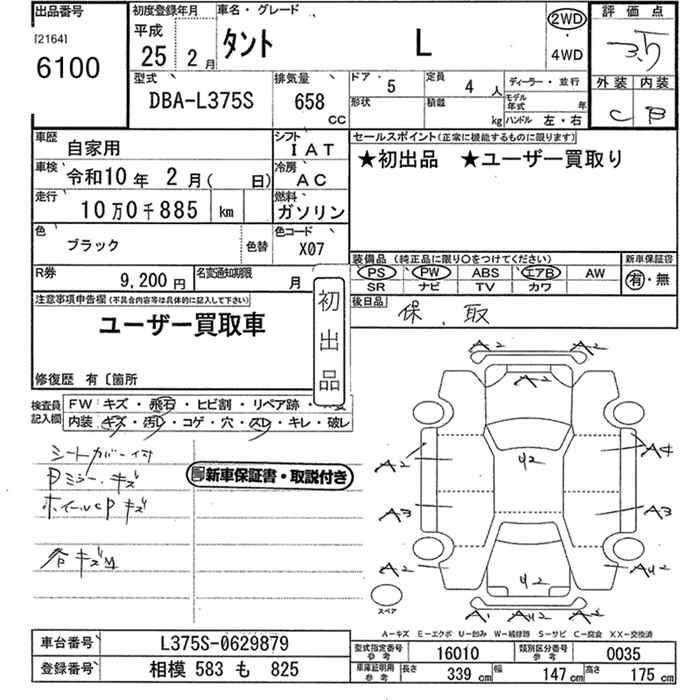 出品番号
[2164]
6100
初度登録年月
平成
25 2月
車名・グレード
タント L
2WD
・
4WD
評価点
3.5
外装 内装
C B
型式
DBA-L375S
排気量
658
CC
ドア
5
定員
4人
形状
積載
kg
ディーラー・並行
モデル年式 年
ハンドル 左・右
車歴
自家用
シフト
IAT
車検
令和10年 2月( 日)
冷房
AC
走行
10万0千885 km
燃料
ガソリン
色
ブラック
色替
色コード
X07
セールスポイント(正常に機能するものに限ります)
★初出品 ★ユーザー買取り
装備品 (純正品に限り○をつけてください)
PS PW ABS エアB AW
SR ナビ TV カワ
新車保証書
有・無
R券
9,200円
名変通知期限
月
後日品
保、取
注意事項申告欄(不具合内容等は具体的に記入して下さい)
ユーザー買取車
初出品
修復歴 有〔箇所
検査員記入欄
FW キズ・飛石・ヒビ割・リペア跡・
内装 キズ・汚レ・コゲ・穴・スレ・キレ・破レ
シートカバー付
Dミラーキズ
ホイールCPキズ
各キズM
新車保証書・取説付き
A2 A2
A2
A2 42 A4
A3 A3
A2 42 A42
A1 A42 A2
スペア
A-キズ E-エクボ U-凹み W-補修跡 S-サビ C-腐食 XX-交換済
車台番号
L375S-0629879
登録番号
相模 583 も 825
型式指定番号
参考
16010
類別区分番号
参考
0035
車庫証明用
参考
長さ
339 cm
幅
147 cm
高さ
175 cm